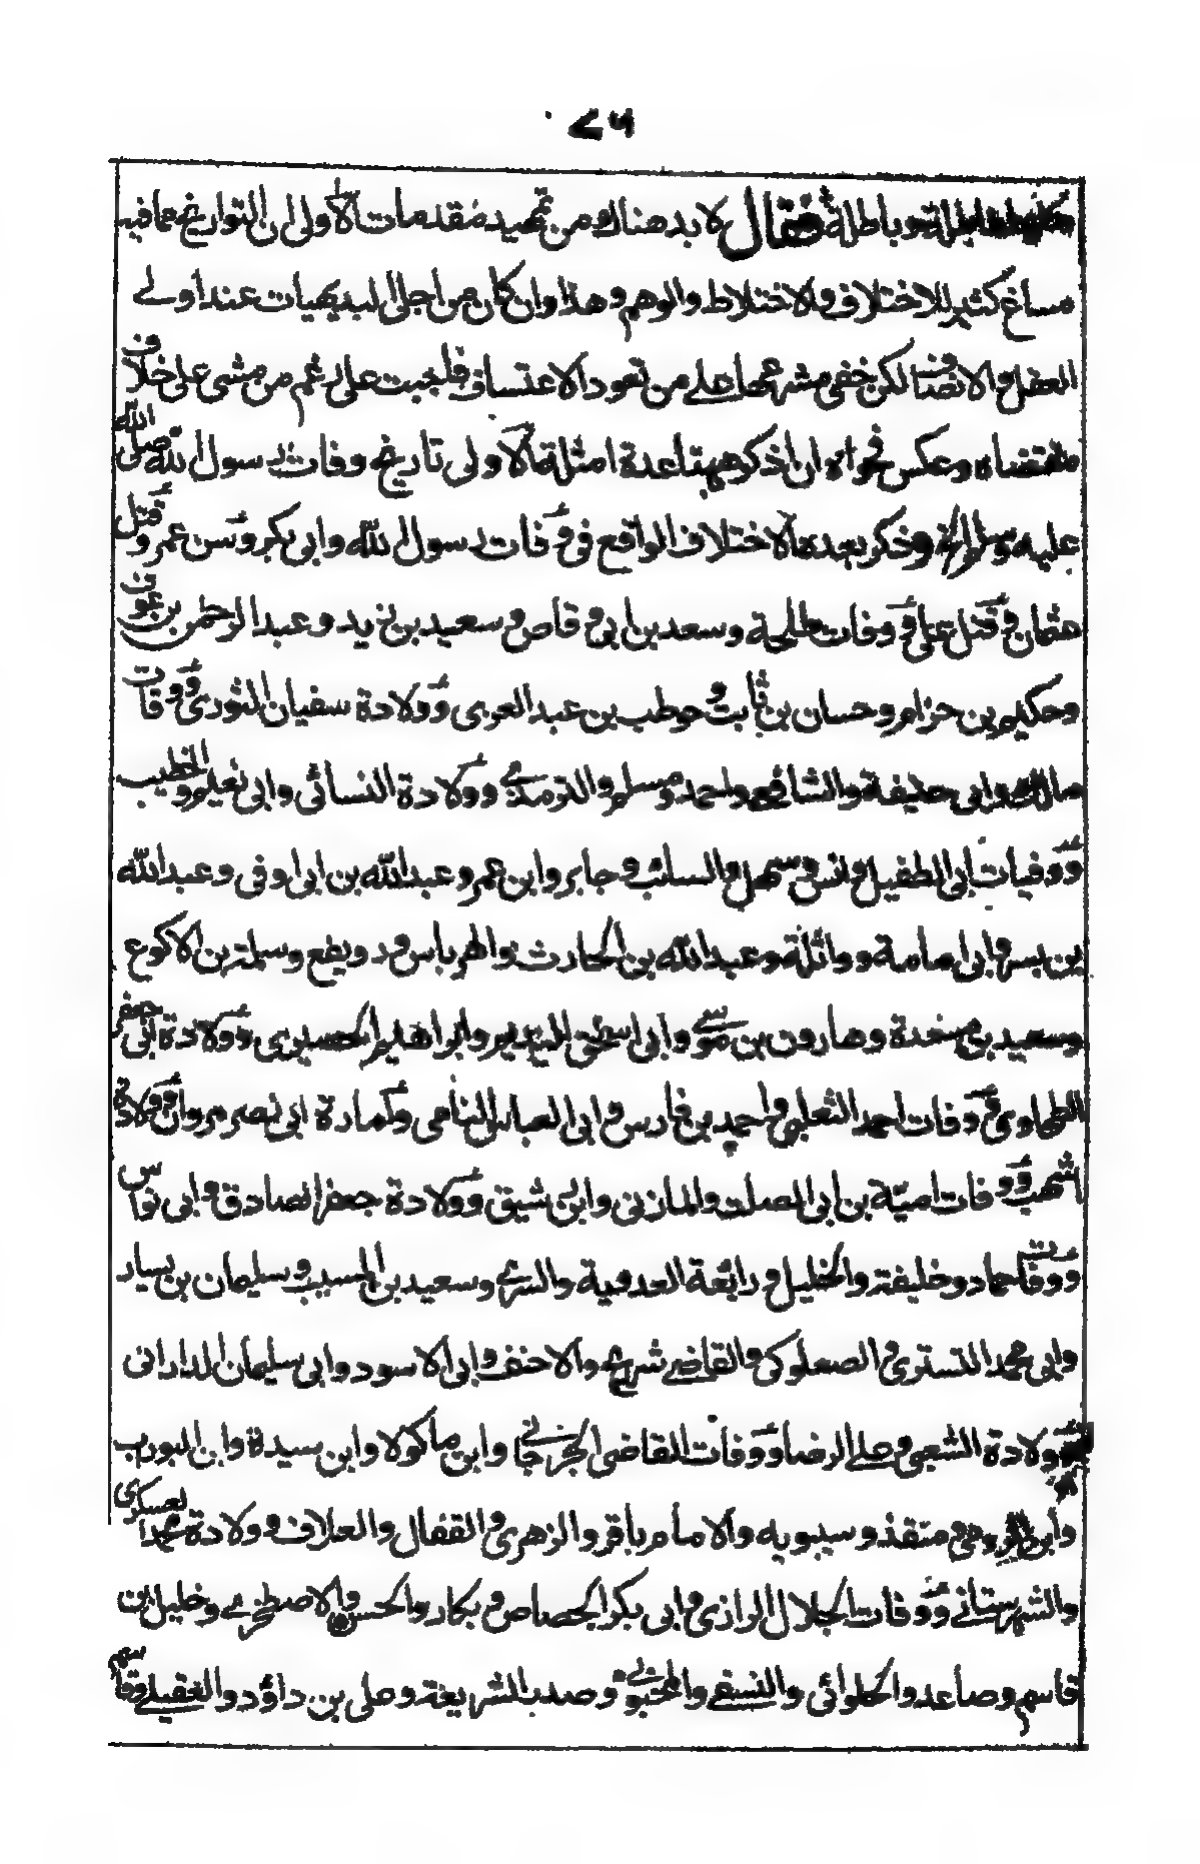 ٧٥
باطلة فقال لا بد هناك من تمهيد مقدمات الاولى ان التواريخ مما فيه
مساغ كثير للاختلاف والاختلاط والوهم وهذا وان كان من اجلى البديهيات عند اولے
العقل والانصاف لكن خفى مشرعها على من تعود الاعتساف فلجبت على رغم من مشى على خلاف
مقتضاه وعكس فحواه ان اذكر ههنا عدة امثلة الاولى تاريخ وفات رسول الله صلى الله
عليه وسلم وذكر بعده الاختلاف الواقع فى وفات رسول الله وابى بكر وسن عمر وقتل
عثمان وقتل على ووفات طلحة وسعد بن ابى وقاص وسعيد بن زيد وعبد الرحمن بن عوف
وحكيم بن حزام وحسان بن ثابت وحوطب بن عبد العزى وولادة سفيان الثورى ووفات
مالك وابى حنيفة والشافعى واحمد ومسلم والترمذے وولادة النسائى وابى نعيم والخطيب
ووفيات ابى الطفيل وانس وسهل والسائب وجابر وابن عمر وعبد الله بن ابى اوفى وعبد الله
بن بسر وابى امامة وواثلة وعبد الله بن الحارث والهرماس ورويفع وسلمة بن الاكوع
وسعيد بن مسعدة وهارون بن موسے وابى اسحق وابراهيم الحصيرى وولادة ابى جعفر
الطحاوى ووفات احمد الثعلبى واحمد بن فارس وابى العباس النامى و ابى نصر مروان وولادة
اشهب ووفات امية بن ابى الصلت والمازنى وابن شيق وولادة جعفر الصادق وابى نواس
ووفات حماد وخليفة والخليل ورابعة العدوية والسرى وسعيد بن المسيب وسليمان بن يسار
وابى محمد التسترى والصعلوكى والقاضے شريح والاحنف وابى الاسود وابى سليمان الدارانى
وولادة الشعبى وعلى الرضا ووفات القاضى الجرجانى وابن ماكولا وابن سيدة وابن البواب
وابن الرومى ومنقذ وسيبويه والامام باقر والزهرى والقفال والعلاف وولادة محمد العسكرى
والشهرستانے ووفات الجلال الرازى وابى بكر الجصاص وبكار والحسن والاصطخرے وخليل بن
قاسم وصاعد والحلوائى والنسفے والمحبوبے وصدر الشريعة وعلى بن داؤد والعقيلے وقاسم